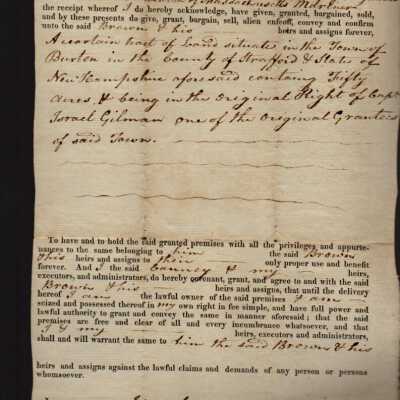 of Massachusetts
the receipt whereof I do hereby acknowledge, have given, granted, bargained, sold,
and by these presents do give, grant, bargain, sell, alien enfeoff, convey and confirm
unto the said Brown & his heirs and assigns forever,
A certain tract of Land situate in the Town of
Burton in the County of Strafford & State of
New Hampshire aforesaid containg Fifty
acres. & being in the Original Right of Capt
Israel Gilman one of the Original Grantees
of said Town.
To have and to hold the said granted premises with all the privileges and appurte-
nances to the same belonging to him the said Brown
& his heirs and assigns to their only proper use and benefit
forever. And I the said Canney & my heirs,
executors, and administrators, do hereby covenant, grant, and agree to and with the said
Brown & his heirs and assigns, that until the delivery
hereof I am the lawful owner of the said premises I am
seized and possessed thereof in my own right in fee simple, and have full power and
lawful authority to grant and convey the same in manner aforesaid; that the said
premises are free and clear of all and every incumbrance whatsoever, and that
I & my heirs, executors and administrators,
shall and will warrant the same to him the said Brown & his
heirs and assigns against the lawful claims and demands of any person or persons
whomsoever.